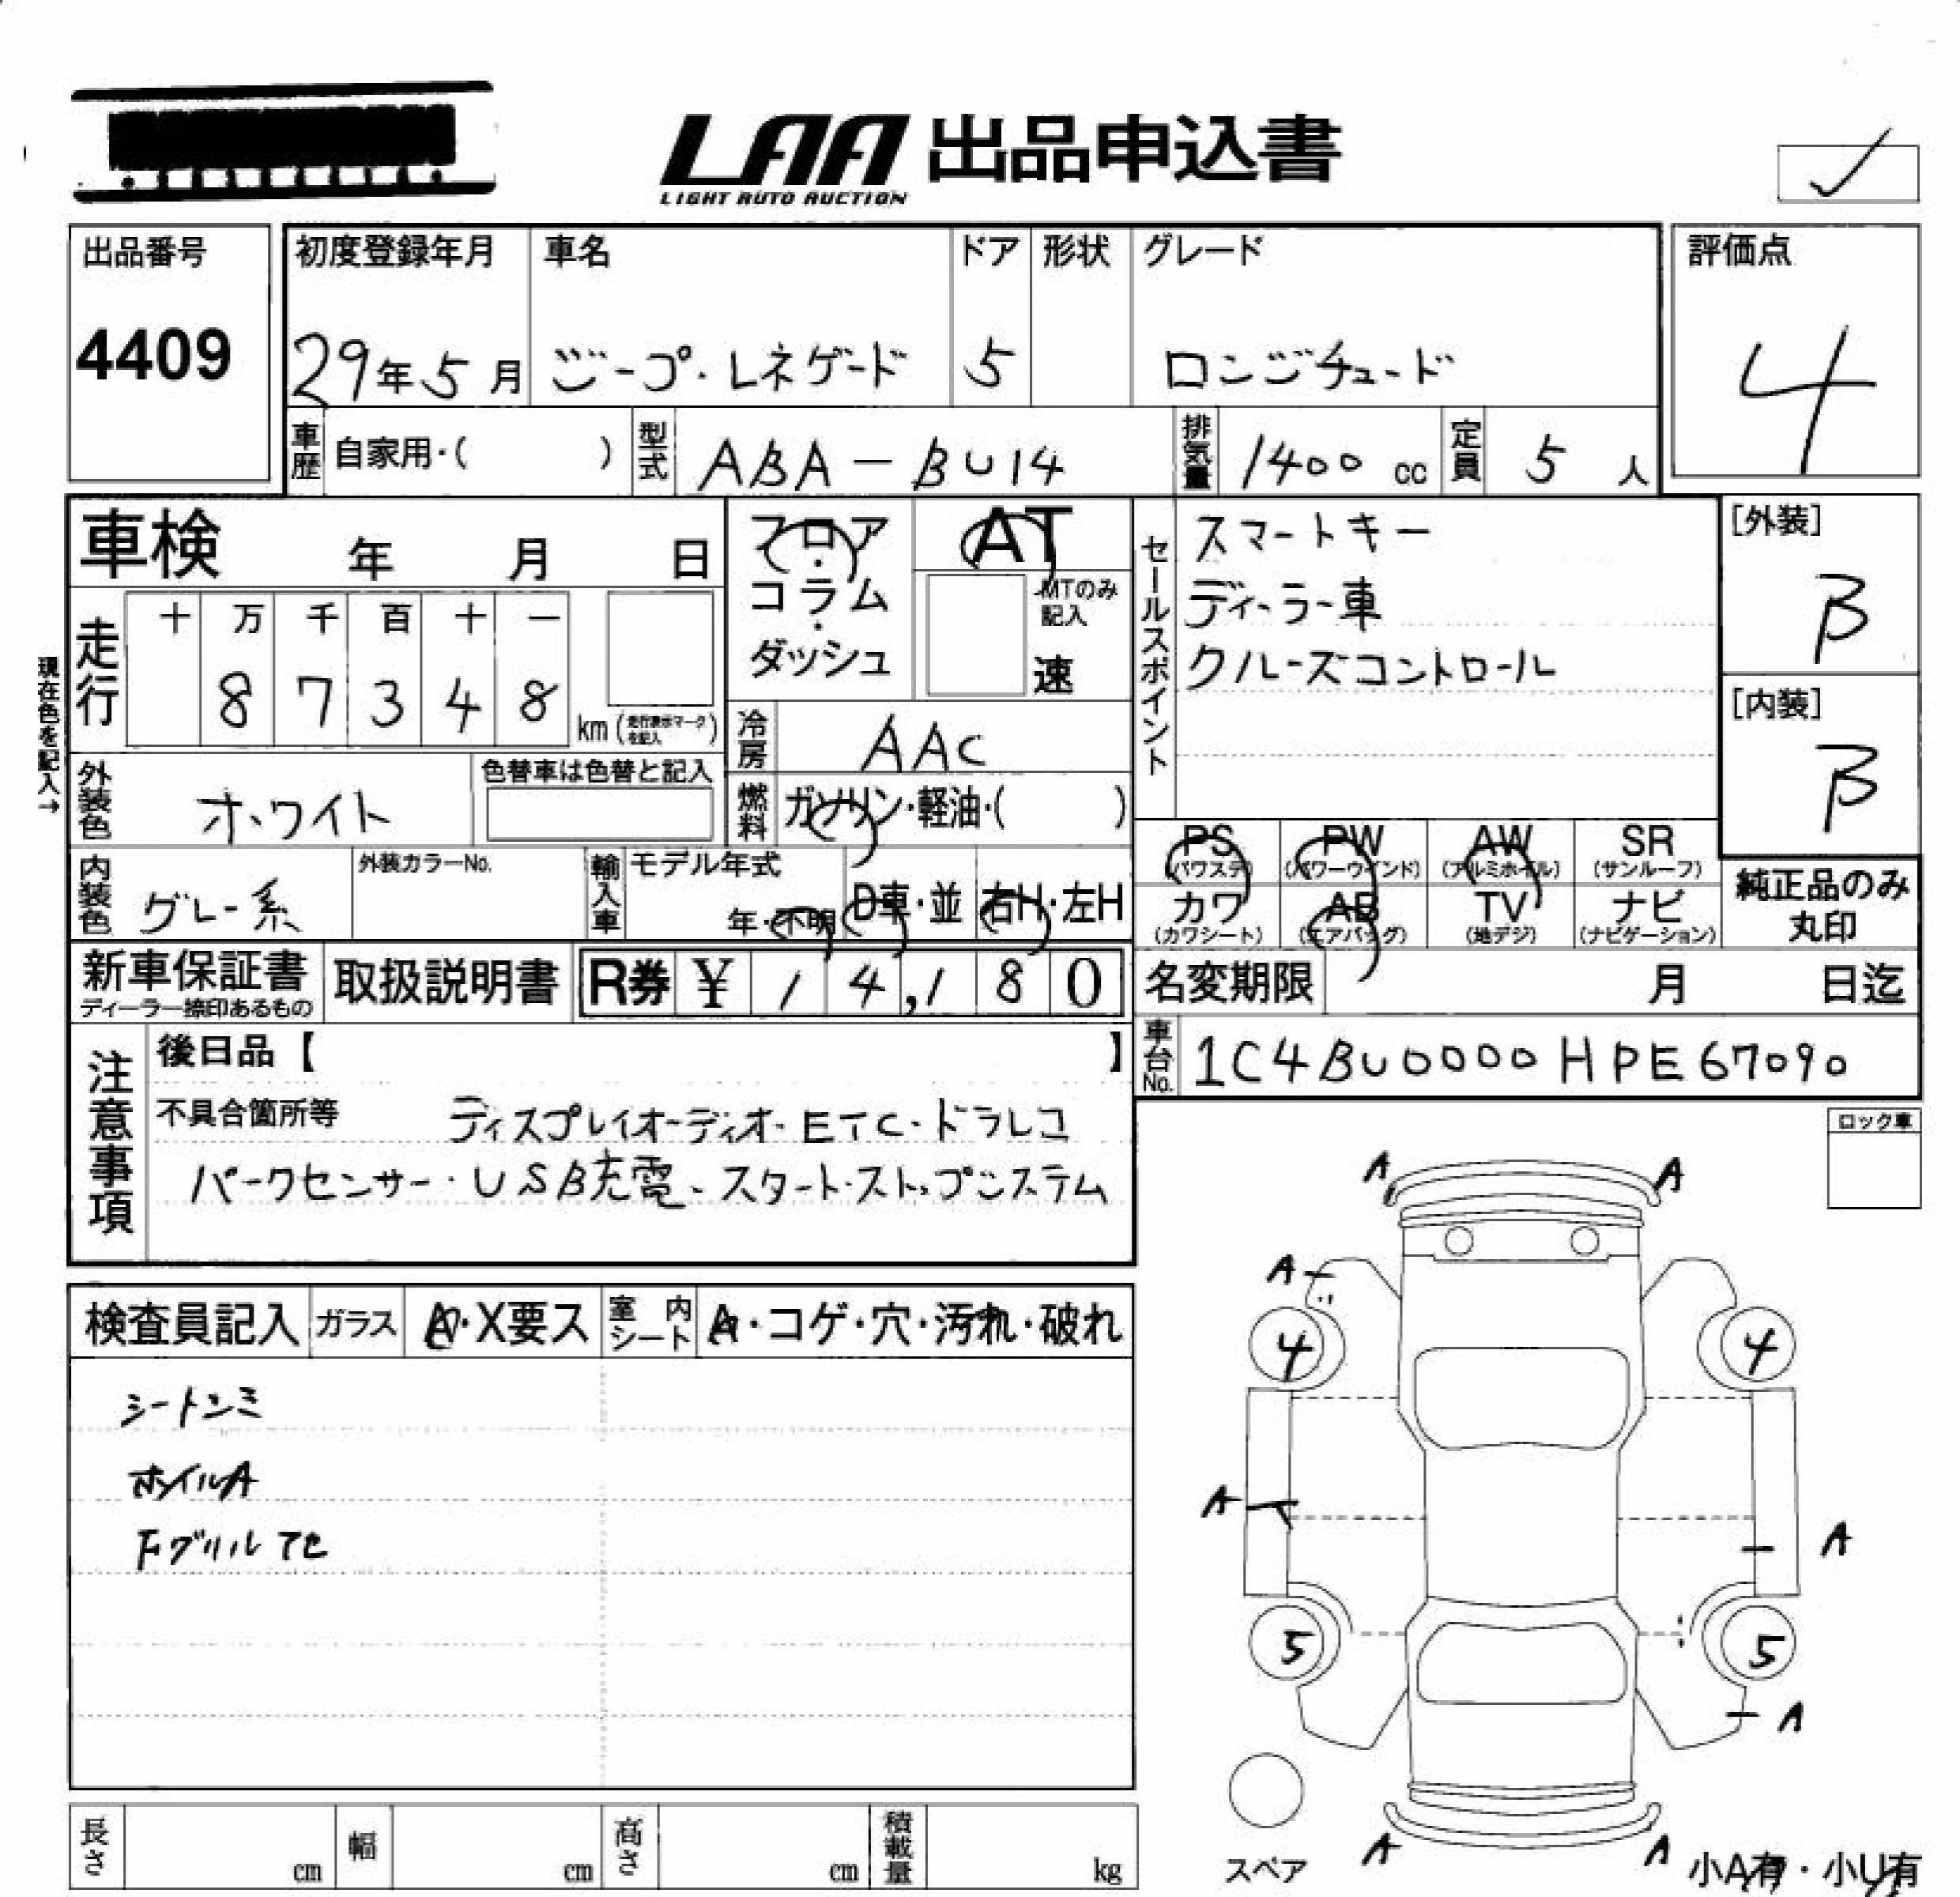 LAA 出品申込書
LIGHT AUTO AUCTION
出品番号 初度登録年月 車名 ドア 形状 グレード 評価点
4409 29年5月 ジープ・レネゲード 5 ロンジチュード 4
車歴 自家用・( ) 型式 ABA-BU14 排気量 1400 cc 定員 5 人
車検 年 月 日
フロア・コラム・ダッシュ
AT
MTのみ記入
速
セールスポイント
スマートキー
ディーラー車
クルーズコントロール
[外装]
B
[内装]
B
現在色を記入→
走行 十 万 千 百 十 一
8 7 3 4 8 km (走行表示マークを記入)
冷房 AAC
外装色 ホワイト 色替車は色替と記入
燃料 ガソリン・軽油・( )
PS (パワステ) PW (パワーウインド) AW (アルミホイル) SR (サンルーフ)
カワ (カワシート) AB (エアバッグ) TV (地デジ) ナビ (ナビゲーション)
純正品のみ丸印
内装色 グレー系 外装カラーNo. 輸入車 モデル年式 年・不明 D車・並 右H・左H
新車保証書 ディーラー捺印あるもの 取扱説明書 R券 ¥ 14,180
名変期限 月 日迄
車台No. 1C4BU0000HPE67090
注意事項
後日品【 】
不具合箇所等 ディスプレイオーディオ・ETC・ドラレコ
パークセンサー・USB充電・スタート・ストップシステム
ロック車
検査員記入 ガラス A・X要ス 室内シート A・コゲ・穴・汚れ・破れ
シートシミ
ホイルA
Fグリル
A A
A
4 4
A A
5 5
A
A A
スペア
小A有・小U有
長さ cm 幅 cm 高さ cm 積載量 kg